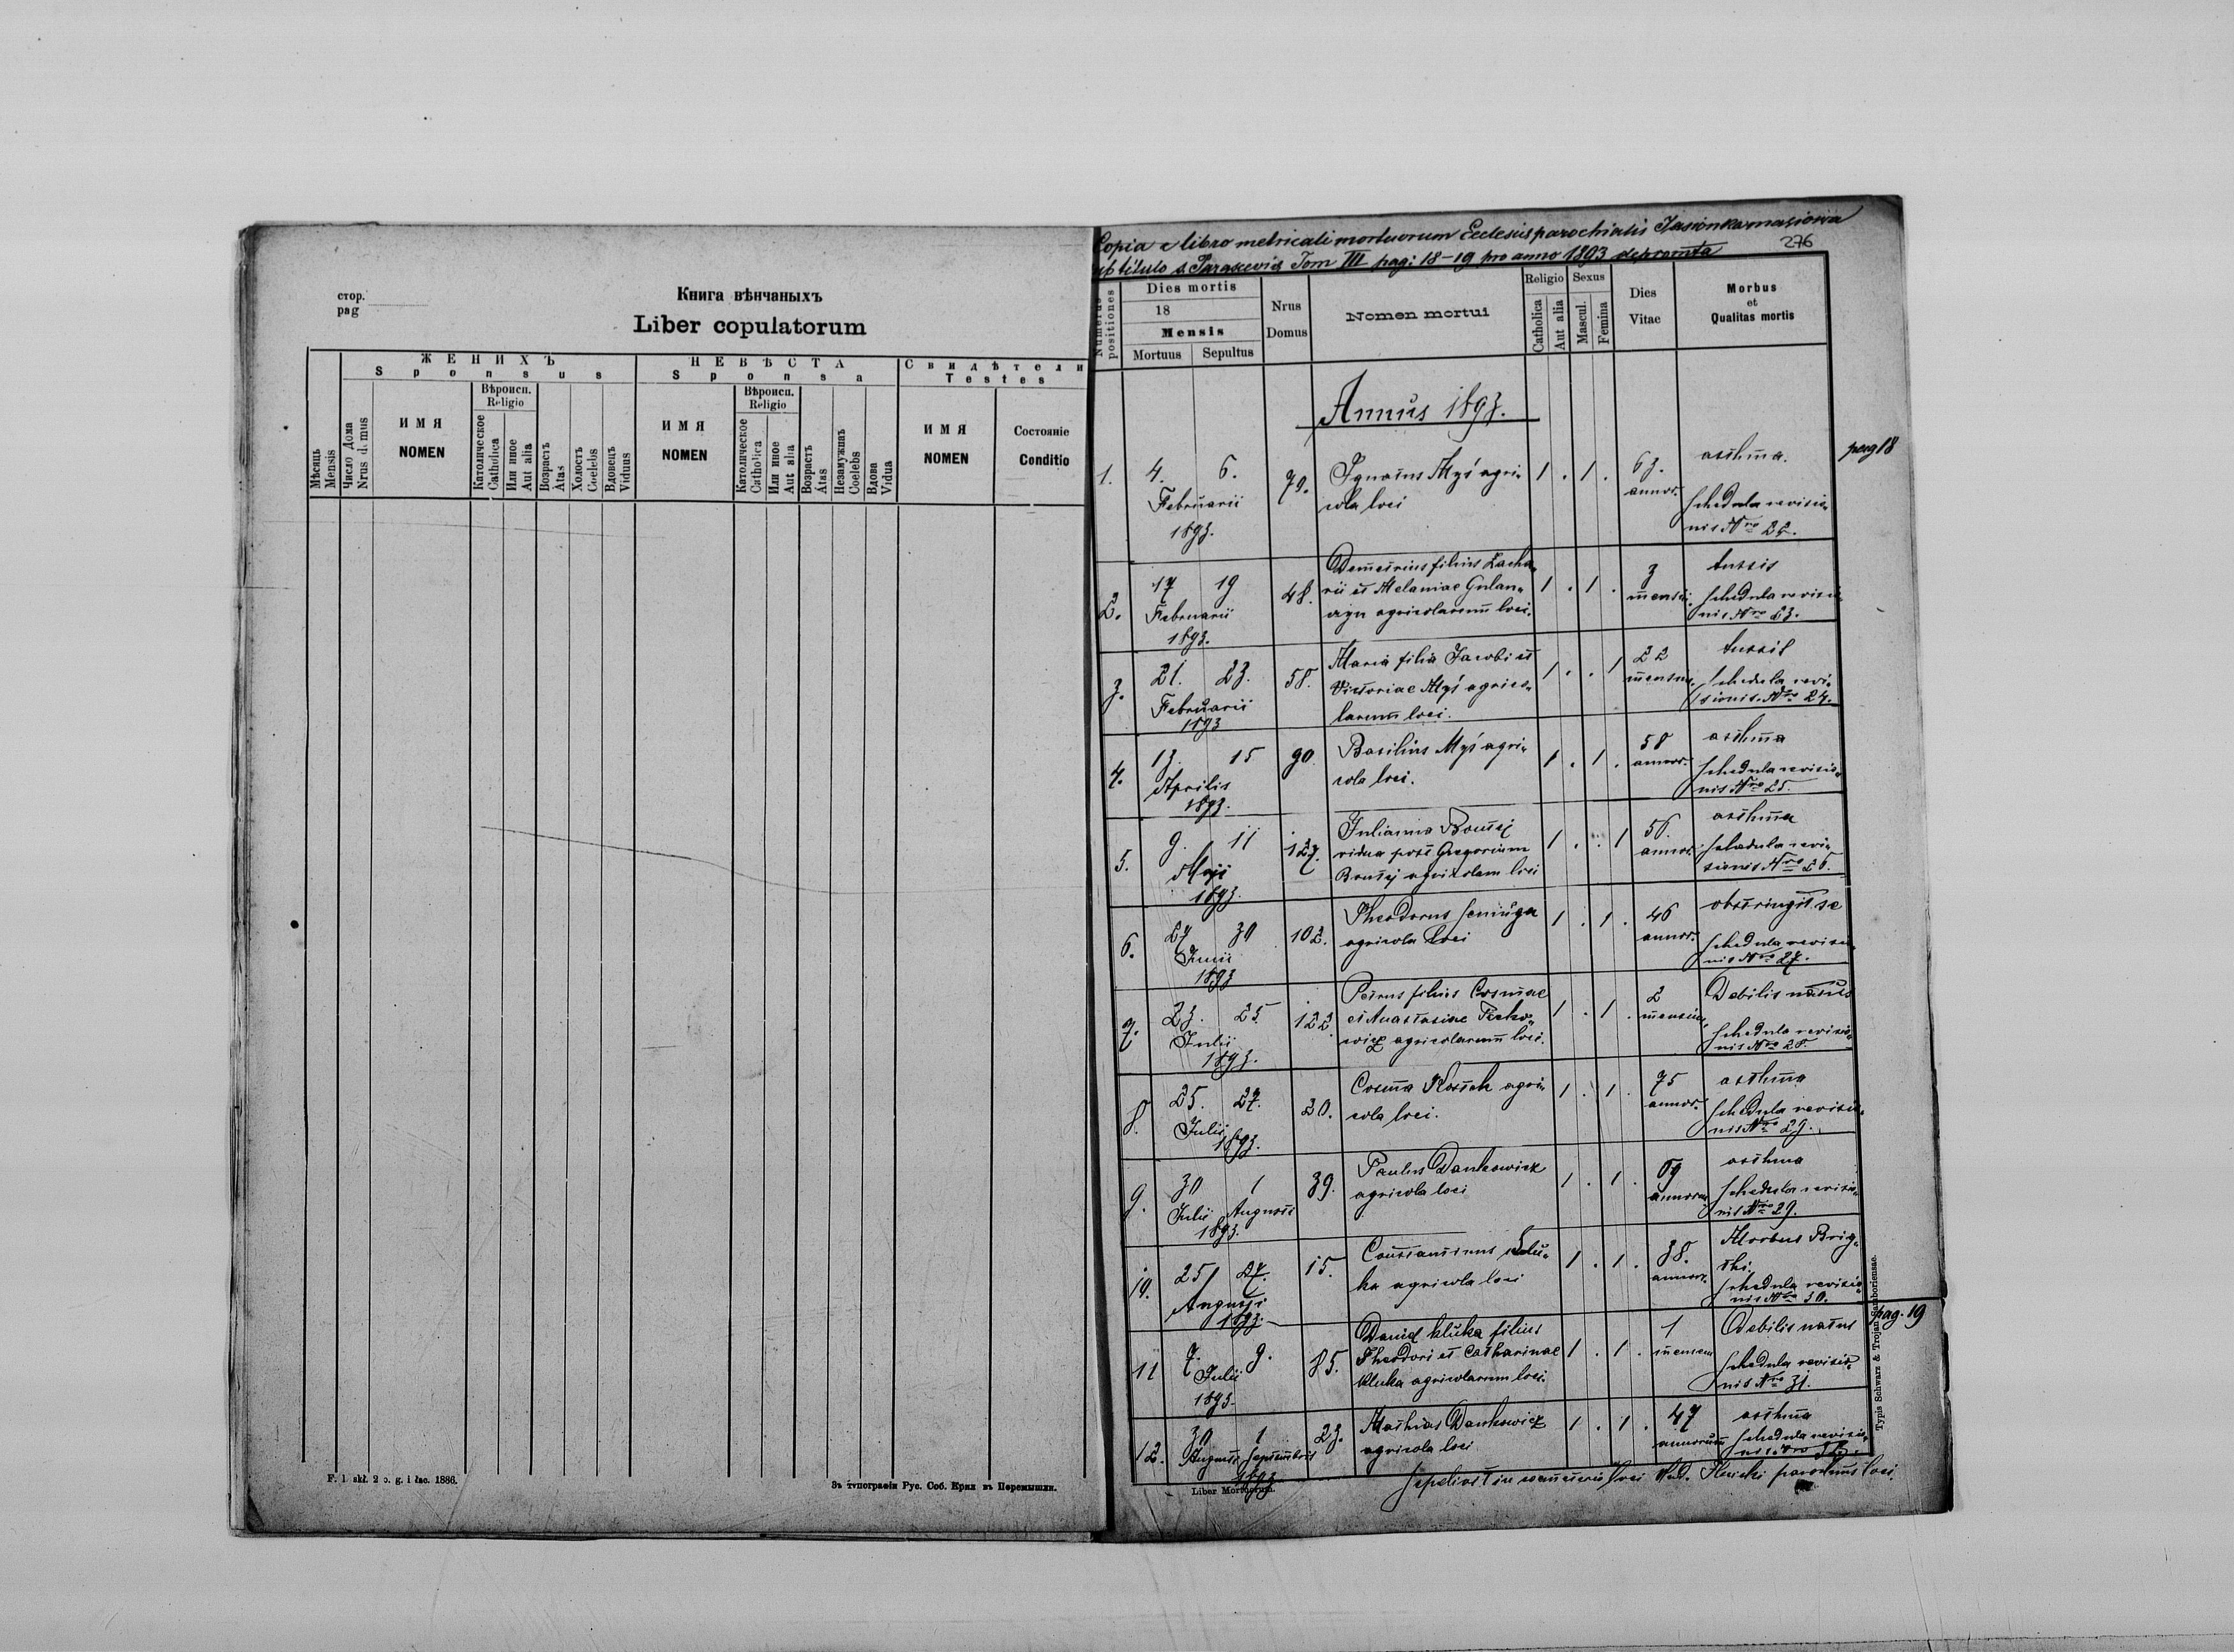 стор.
pag
Книга вѣнчаныхъ
Liber copulatorum
Мѣсяць
Mensis
Число Дома
Nrus domus
ЖЕНИХЪ
Sponsus
ИМЯ
NOMEN
Вѣроисп.
Religio
Католическое
Catholica
Или иное
Aut alia
Возрастъ
Atas
Холостъ
Coelebs
Вдовецъ
Viduus
НЕВѢСТА
Sponsa
ИМЯ
NOMEN
Вѣроисп.
Religio
Католическое
Catholica
Или иное
Aut alia
Возрастъ
Atas
Незамужнаъ
Coelebs
Вдова
Vidua
Свидѣтели
Testes
ИМЯ
NOMEN
Состояніе
Conditio
F. 1 skł. 2 o. g. i łac. 1886.
Зъ типографіи Рус. Соб. Крил въ Перемышли.
Copia e libro metricali mortuorum Ecclesiis parochialis Jasionkamasiowa
276
sub titulo s. Parascevis Tom III pag: 18-19 pro anno 1893 depromta
Numerus
positiones
Dies mortis
18
Mensis
Mortuus Sepultus
Nrus
Domus
Nomen mortui
Religio
Catholica
Aut alia
Sexus
Mascul.
Femina
Dies
Vitae
Morbus
et
Qualitas mortis
Annus 1893.
pag 18
1. 4. 6. 79. Ignatius Myś agri- 1 . 1 . 63. asthma.
Februarii cola loci annor. schedula revisio-
1893. nis Nro 22.
2. 17 19 48. Demetrius filius Zacha- 1 . 1 . 3 tussis
Februarii rii et Melaniae mensiu. schedula revisio-
1893. agricolarum loci. nis Nro 23.
3. 21. 23. 58. Maria filia Jacobi et 1 . . 1 22 tussis
Februarii Victoriae Myś agrico- mensium schedula revi-
1893 larum loci. sionis Nro 24.
4. 13. 15 90. Basilius Myś agri- 1 . 1 . 58 asthma
Aprilis cola loci. annor. schedula revisio-
1893. nis Nro 25.
5. 9. 11 127. Julianna 1 . . 1 56. asthma
Maji vidua post Gregorium annor. schedula revi-
1893. agricolam loci sionis Nro 26.
6. 27 30 102. Theodorus Seniuga 1 . 1 . 46 obstringit se
Junii agricola loci annor. schedula revisio-
1893 nis Nro 27.
7. 23. 25. 122. Petrus filius Cosmae 1 . 1 . 2 Debilis natus
Julii et Anastasiae mensium schedula revisio-
1893. wicz agricolarum loci. nis Nro 28.
8. 25. 27. 20. Cosma Kostek agri- 1 . 1 . 75 asthma
Julii cola loci. annor. schedula revisio-
1893. nis Nro 29.
9. 30 1 39. Paulus Dankowicz 1 . 1 . 69 asthma
Julii Augusti agricola loci annorum schedula revisio-
1893. nis Nro 29.
10. 25 27. 15. Constantinus 1 . 1 . 38. Morbus Brig-
Augusti ka agricola loci annor. thi.
1893. schedula revisio-
nis Nro 30.
pag. 19
11 7. 9. 85. Daniel Kluka filius 1 . 1 . 1 Debilis natus
Julii Theodori et Catharinae mensem schedula revisio-
1893. Kluka agricolarum loci. nis Nro 31.
12. 30 1 23. Mathias Dankowicz 1 . 1 . 47 asthma
Augusti Septembris agricola loci annorum schedula revisio-
1893 nis Nro
Sepelivit in coemeterio loci parochus loci.
Liber Mortuorum.
Typis Schwarz & Trojan Samboriensae.